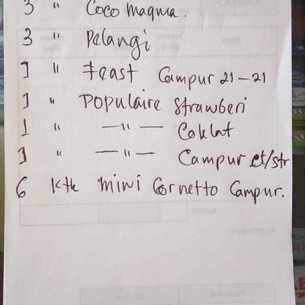 3 " Coco magma.
3 " Pelangi
1 " Feast Campur 21-21
1 " Populaire Strawberi
1 " —"— Coklat
1 " —"— Campur ct/str
6 ktk mini Cornetto Campur.